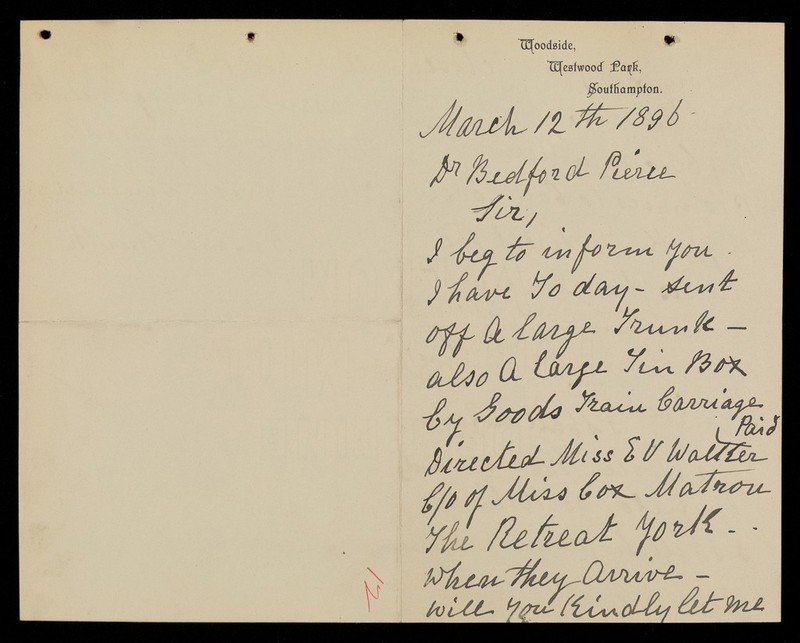 Woodside,
Westwood Park,
Southampton.
March 12th 1896
Dr Bedford Pierce
Sir,
I beg to inform you.
I have To day - sent
off A large Trunk -
also A large Tin Box
by Goods Train Carriage
Paid
Directed Miss E V Walker
C/o of Miss Cox Matron
The Retreat York - -
When they Arrive -
will you Kindly let me
12